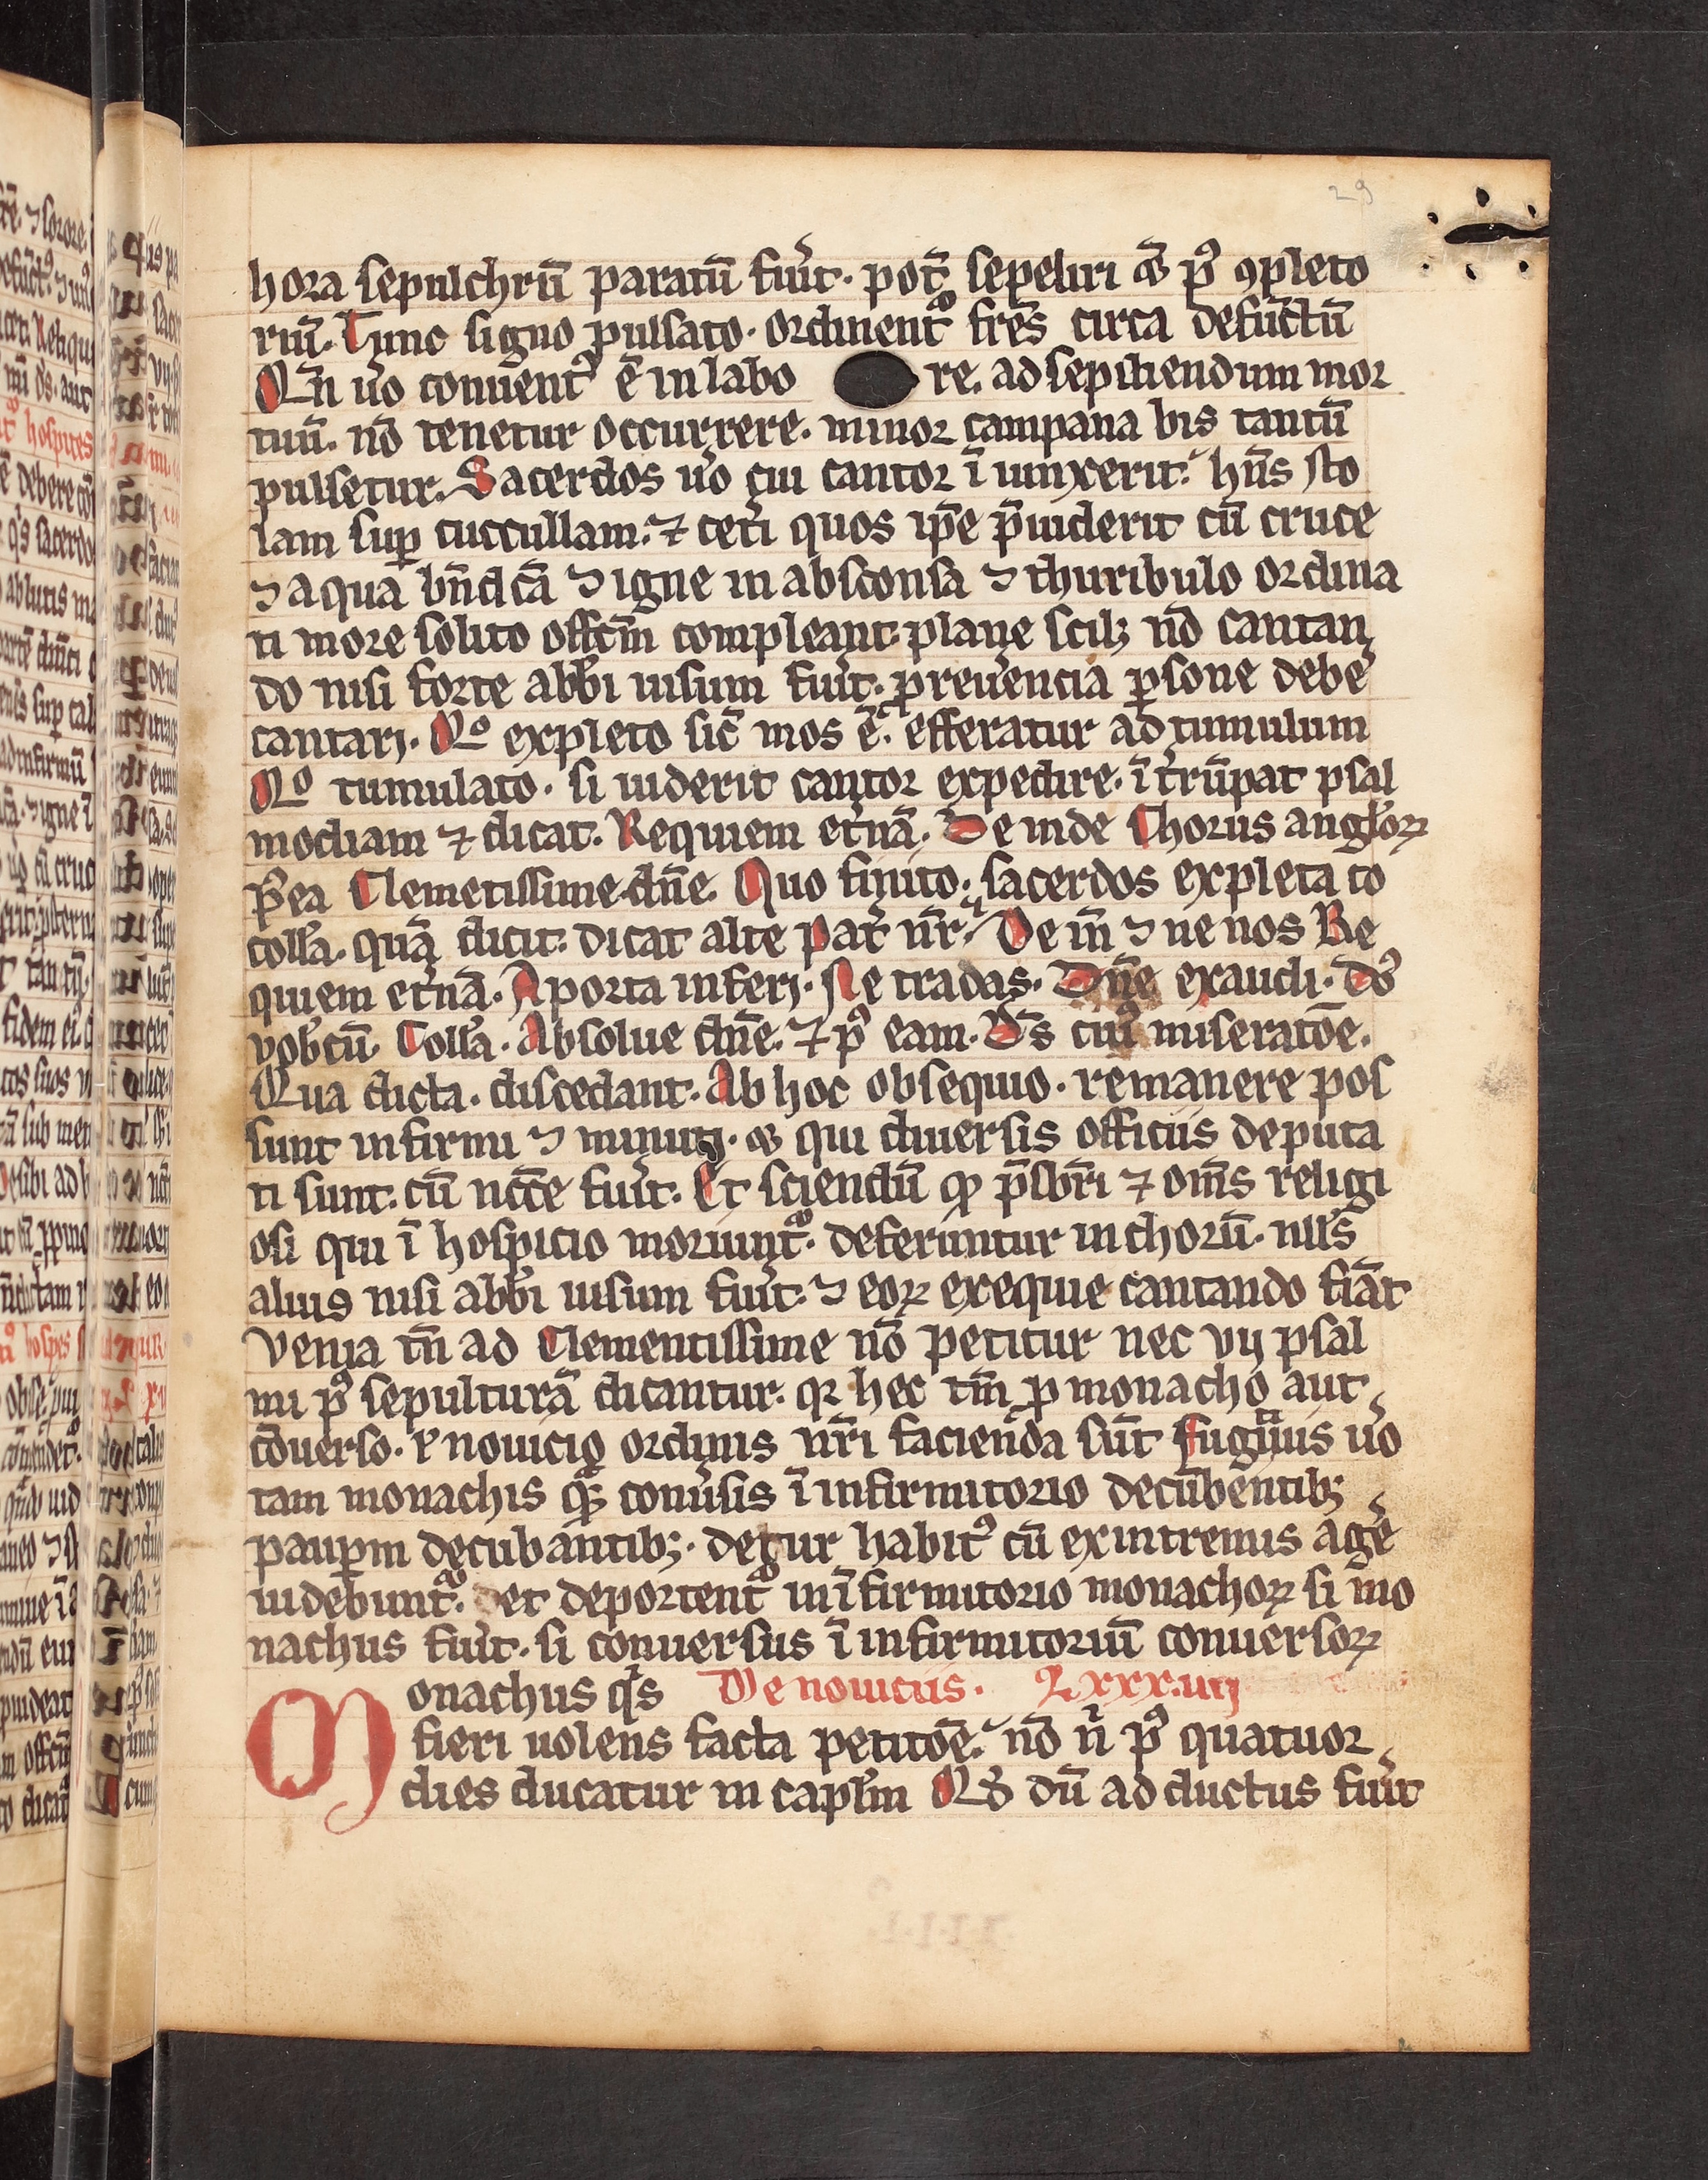 29
hora sepulchrū paratū fu̾it · pot̾ sepeliri & pꝰ ꝯpleto
riū. Tunc signo pulsato · ordinentᷣ fr̄es circa defūctū
Qn̄ uo conuentꝰ ē in labo re. ad sepeliendum mor
tuū. nō tenetur occurrere. minor campana bis tantū
pulsetur. Sacerdos uo cui cantor ī iunxerit. hn̄s sto
lam suꝑ cuccullam. ⁊ cet̾i quos ip̄e p̄uiderit cū cruce
⁊ aqua bn̄dcā ⁊ igne in absconsa ⁊ thuribulo ordina
ti more solito offcm̄ compleant. plane scilꝫ nō cantan
do nisi forte abb̄i uisum fu̾it. ꝓ reuerencia ꝑsone debe
cantari. Qo expleto sic̄ mos ē. efferatur ad tumulum
Qo tumulato · si uiderit cantor expedire. ī t̾rūpat psal
modiam ⁊ dicat. Requiem et̾nā. De inde Chorus angl̾oꝝ
p̾ea Clemetissime dn̄e. Quo finito. sacerdos expleta to
coll̾a. quā dicit. dicat alte pat̾ nr̄. De in̄ ⁊ ne nos Re
quiem et̾nā. A porta inferi. Ne tradas. Dn̄e exaudi. Dō
vob̾cū. Coll̾a. Absolue dn̄e. ⁊ pꝰ eam. Ds̄ cuiꝰ miseratōe.
Qua dicta. discedant. Ab hoc obsequio. remanere pos
sunt infirmi ⁊ minuti. & qui diuersis officiis deputa
ti sunt. cū ncc̄e fu̾it. Et sciendū ꝙ p̄sbr̄i ⁊ om̄s religi
osi qui ī hospicio moriuntᷣ. deferuntur in chorū. null̾s
alius nisi abb̄i uisum fu̾it. ⁊ eoꝝ exequie cantando fiāt
Venia tn̄ ad Clementissime nō petitur nec vij psal
mi pꝰ sepulturā dicantur. qꝛ hec tm̄ ꝓ monacho aut
cōuerso. ł nouicio ordinis nr̄i facienda sūt Fugitiuis uo
tam monachis qᷓꝫ conu̾sis ī infirmitorio decūbentibꝫ
pauꝑm decubantibꝫ. detur habitꝰ cū ex in tremis age
uidebuntᷣ. et deportentᷣ in ī firmitorio monachoꝝ si mo
nachus fu̾it. si conuersus ī infirmitoriū conuersoꝝ
Monachus qͥs De nouiciis. Lxxx.iiij
fieri uolens facta petitōe. nō n̾ pꝰ quatuor
dies ducatur in capl̾m Qd̾ dū ad ductus fu̾it